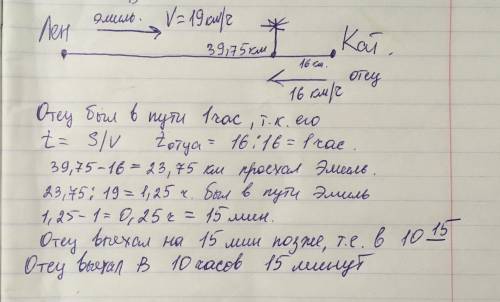 Лен Эмиль. V = 19 км/ч
39,75 км Кат.
16 км. отец
16 км/ч
Отец был в пути 1 час, т.к. его
t = S/V t отца = 16 : 16 = 1 час.
39,75 - 16 = 23,75 км проехал Эмиль.
23,75 : 19 = 1,25 ч. был в пути Эмиль
1,25 - 1 = 0,25 ч = 15 мин.
Отец выехал на 15 мин позже, т.е. в 10 15
Отец выехал в 10 часов 15 минут